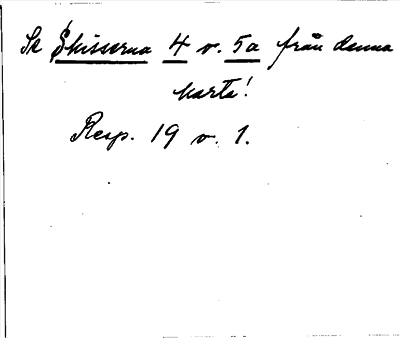 Se Skisserna 4 o. 5a från denna
karta!
Resp. 19 o. 1.